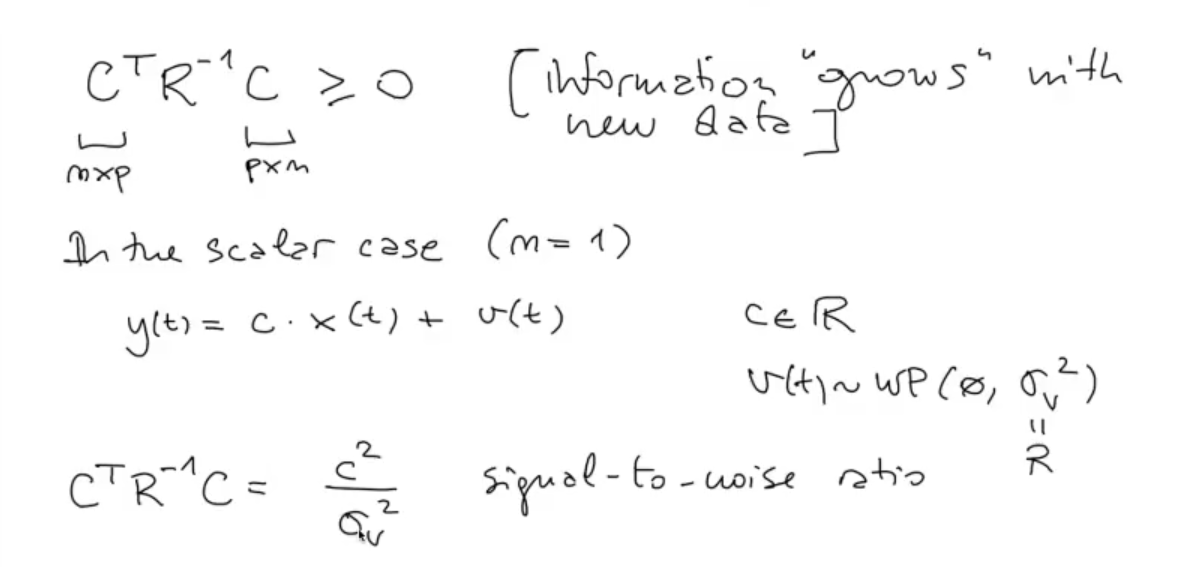 CᵀR⁻¹C ≥ 0 [information "grows" with
new data]
n×p p×n
In the scalar case (n = 1)
y(t) = c · x(t) + v(t) c ∈ ℝ
v(t) ~ WP(ø, σᵥ²)
=
R
CᵀR⁻¹C = c²/σᵥ² signal-to-noise ratio